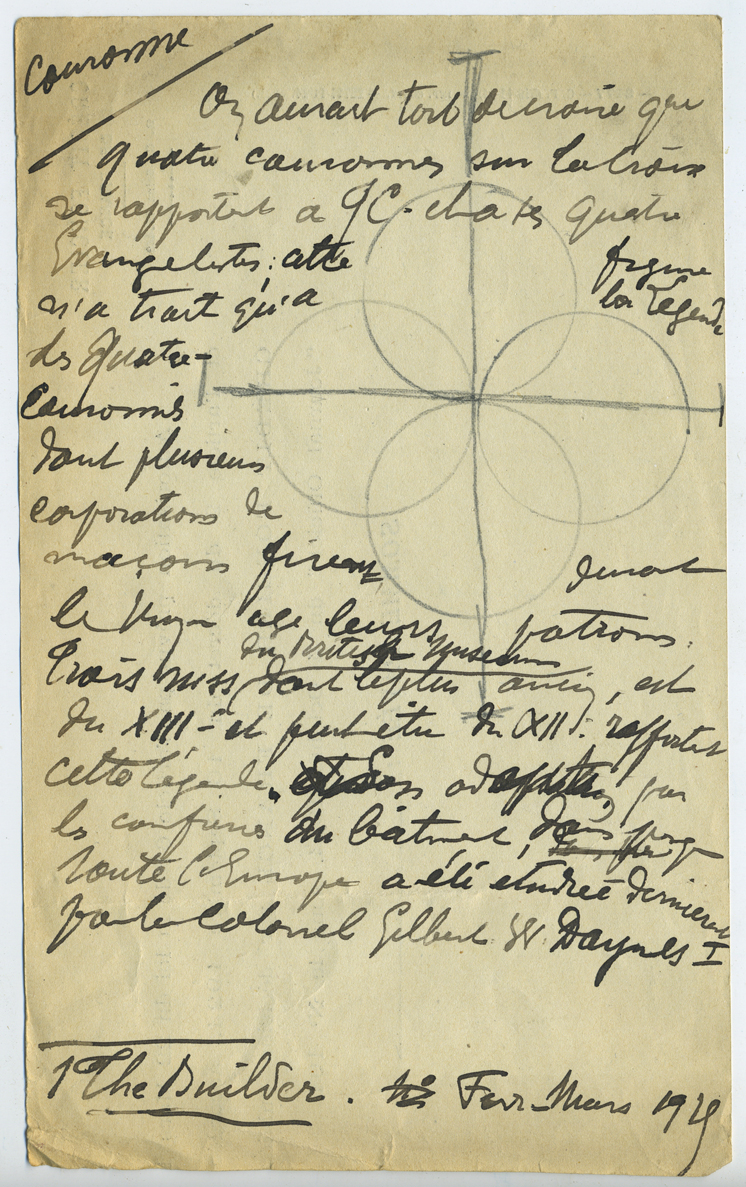 Couronne
On aurait tort de croire que
quatre couronnes sur la Croix
se rapportent a JC. et a ses quatre
Evangelistes; cette figure
n'a trait qu'a la Légende
des Quatre-
Couronnés
dont plusieurs
corporations de
maçons firent durant
le Moyen age leurs patrons.
du British Museum
Trois mss, dont le plus ancien, est
du XIIIe et peut être du XIIe rapportent
cette légende, adoption par
les confreries du bâtiment, dans presque
toute l'Europe a été etudiée dernierement
par le Colonel Gilbert W Daynes 1
1 The Builder. Fevr-Mars 1929